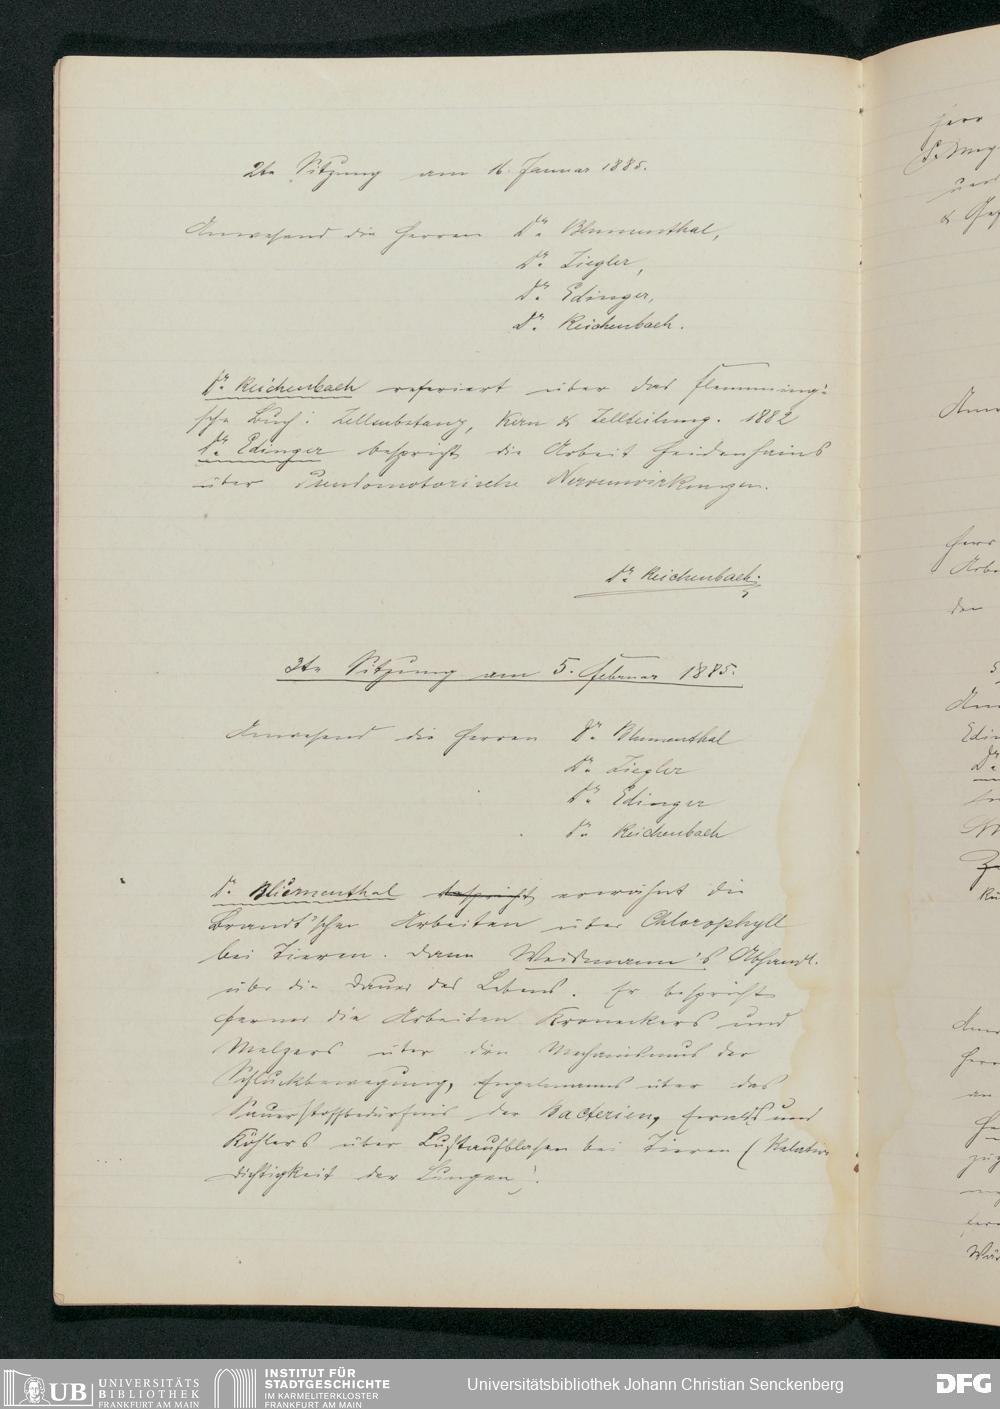 2te Sitzung am 16. Januar 1885.
Anwesend die Herren Dr. Blumenthal,
Dr. Ziegler,
Dr. Edinger,
Dr. Reichenbach.
Dr. Reichenbach referiert über das Flemming'-
sche Buch: Zellsubstanz, Kern & Zellteilung. 1882
Dr. Edinger bespricht die Arbeit Heidenhains
über Pseudomotorische Nervenwirkungen.
Dr. Reichenbach.
3te Sitzung am 5. Februar 1885.
Anwesend die Herren Dr. Blumenthal
Dr. Ziegler
Dr. Edinger
Dr. Reichenbach
Dr. Blumenthal bespricht erwähnt die
Brandt'schen Arbeiten über Chlorophyll
bei Tieren. Dann Weismann's Abhandl.
über die Dauer des Lebens. Er bespricht
ferner die Arbeiten Kroneckers und
Melzers über den Mechanismus der
Schluckbewegung, Engelmanns über das
Sauerstoffbedürfnis der Bacterien, und
Köhlers über Luftaufblasen bei Tieren (Relative
Dichtigkeit der Lungen).
UB UNIVERSITÄTS
BIBLIOTHEK
FRANKFURT AM MAIN
INSTITUT FÜR
STADTGESCHICHTE
IM KARMELITERKLOSTER
FRANKFURT AM MAIN
Universitätsbibliothek Johann Christian Senckenberg
DFG